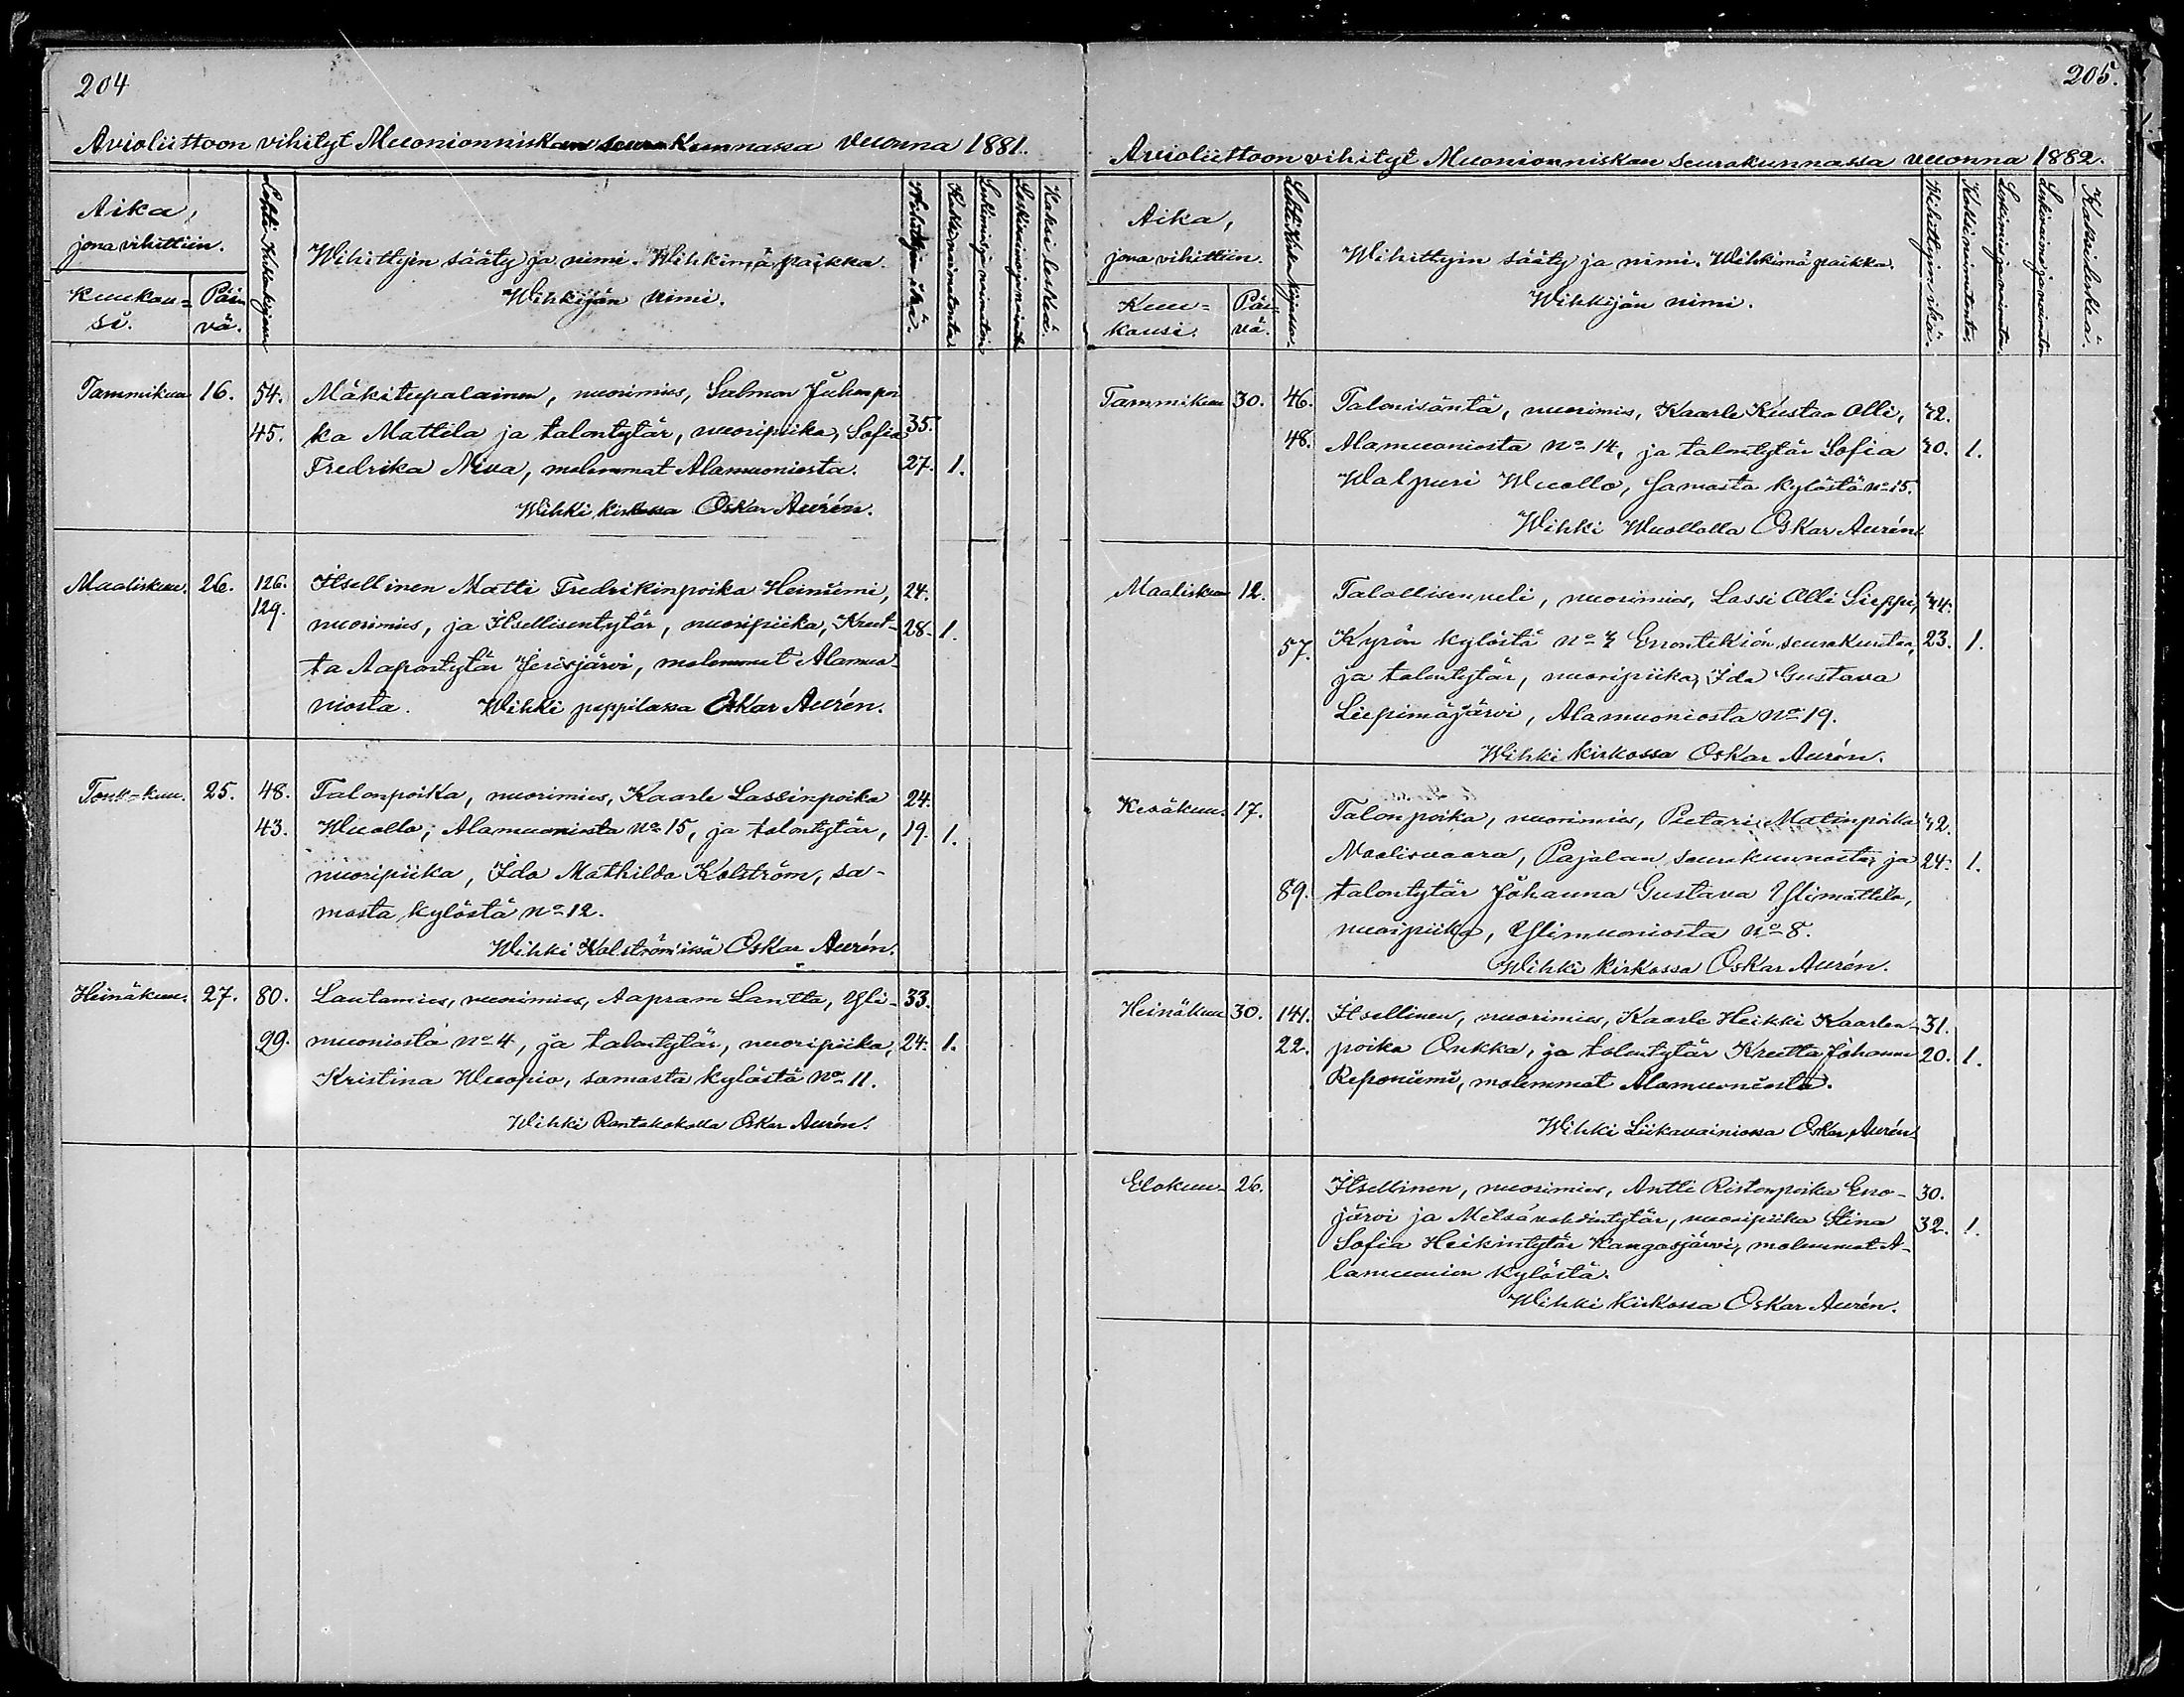 204
Avioliittoon vihityt Muonionniskan seurakunnassa vuonna 1881.
Aika,
jona vihittiin.
Kuukau=
si.
Päi
vä.
Wihittyin sääty ja nimi. Wihkimä paikka.
Wihkijän nimi.
Wihittyin ikä.
Kaksi naimatonta.
Leskimies ja naimaton
Kaksi leskeä.
Tammikuu 16. 54. Mäkitupalainen, nuorimies, Salmon Juhonpoi
45. ka Mattila ja talontytär, nuoripiika, Sofia 35.
Fredrika Niva, molemmat Alamuoniosta. 27. 1.
Wihki kirkossa Oskar Aurén.
Maaliskuu. 26. 126. Itsellinen Matti Fredrikinpoika Heiniemi, 24.
129. nuorimies, ja Itsellisentytär, nuoripiika, Kreet- 28. 1.
ta Aapontytär Jerisjärvi, molemmat Alamuo-
niosta. Wihki pappilassa Oskar Aurén.
Touko-kuu. 25. 48. Talonpoika, nuorimies, Kaarle Lassinpoika 24.
43. Wuollo, Alamuoniosta No 15, ja talontytär, 19. 1.
nuoripiika, Ida Mathilda Kolström, sa-
masta kylästä No 12.
Wihki Kolströmissä Oskar Aurén.
Heinäkuu. 27. 80. Lautamies, nuorimies, Aapram Lantta, Yli- 33.
99. muoniosta No 4, ja talontytär, nuoripiika, 24. 1.
Kristina Wuopio, samasta kylästä No 11.
Wihki Rantakokolla Oskar Aurén.
205.
Avioliittoon vihityt Muonionniskan seurakunnassa vuonna 1882.
Aika,
jona vihittiin.
Kuu=
kausi.
Päi
vä.
Wihittyin sääty ja nimi. Wihkimä paikka.
Wihkijän nimi.
Wihittyin ikä.
Kaksi naimatonta.
Leskimies ja naimaton.
Leskivaimo ja naimaton
Kaksi leskeä.
Tammikuu 30. 46. Talonisäntä, nuorimies, Kaarle Kustaa Olli, 42.
48. Alamuoniosta No 14, ja talontytär Sofia 40. 1.
Walpuri Wuollo, samasta kylästä No 15.
Wihki Wuollolla Oskar Aurén
Maaliskuu 12. Talollisen veli, nuorimies, Lassi Olli Sieppi, 44.
57. Kyrön kylästä No 4 Enontekiön seurakuntaa, 23. 1.
ja talontytär, nuoripiika, Ida Gustava
Liepimäjärvi, Alamuoniosta No 19.
Wihki kirkossa Oskar Aurén.
Kesäkuu. 17. Talonpoika, nuorimies, Pietari Matinpoika 42.
Naalisvaara, Pajalan seurakunnasta, ja 24. 1.
89. talontytär Johanna Gustava Ylimattila,
nuoripiika, Ylimuoniosta No 8.
Wihki kirkossa Oskar Aurén.
Heinäkuu 30. 141. Itsellinen, nuorimies, Kaarle Heikki Kaarlen- 31.
22. poika Onkka, ja talontytär Kreetta Johanna 20. 1.
Reponiemi, molemmat Alamuoniosta.
Wihki Liikavainiossa Oskar Aurén.
Elokuu. 26. Itsellinen, nuorimies, Antti Ristonpoika Eno- 30.
järvi ja Metsänvahdintytär, nuoripiika Stina 32. 1.
Sofia Heikintytär Kangosjärvi, molemmat A-
lamuonion kylästä.
Wihki kirkossa Oskar Aurén.